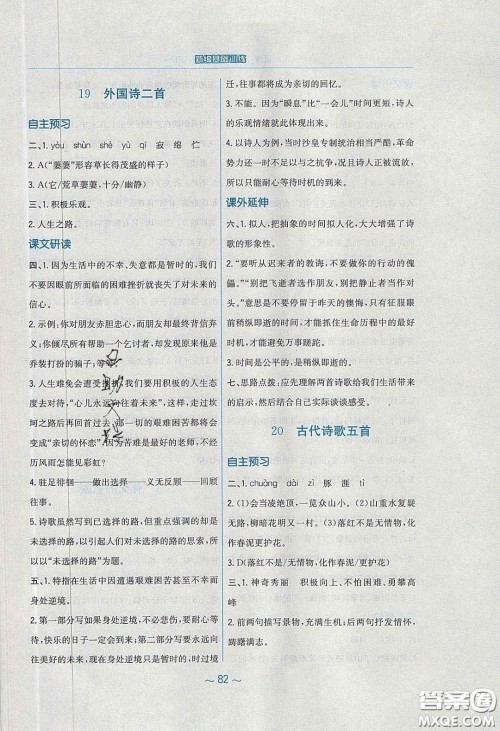 新编基础训练
19 外国诗二首
自主预习
二、1. yòu shùn shè yù qī 寂 绵 伫
2. A(“萋萋”形容草长得茂盛的样子)
3. A(它/荒草萋萋,十分/幽静)
三、1. 积极乐观。
2. 人生之路。
课文研读
四、1. 因为生活中的不幸、失意都是暂时的,我们不要因眼前所面临的困难挫折就丧失了对未来的信心。
2. 示例:你对朋友赤胆忠心,而朋友最终却背信弃义;你倾尽所有帮助一个乞讨者,却发现原来他是乔装打扮的骗子;等等。
3. 人生难免会遭受挫折,我们要用积极的人生态度去对待,“心儿永远向往着未来”,要坚信,走过坎坷之后前途就是光明。那一段艰难困苦都将会变成“亲切的怀恋”,因为苦难是最好的老师,不经历风雨怎能见彩虹?
4. 驻足徘徊——做出选择——义无反顾——回顾往事。
5. 诗歌虽然写到已选择的路,但重点强调的却是未选择的路,以引起人们对未选择的路的思索,所以以“未选择的路”为题。
五、1. 特指在生活中因遭遇艰难困苦甚至不幸而身处逆境。
2. 第一部分写如果身处逆境,不必悲伤,要耐心等待,快乐的日子一定会到来;第二部分写要永远向往美好的未来,现在身处逆境,时过境
迁,往事都将成为亲切的回忆。
3. 不能,因为“瞬息”比“一会儿”时间更短,诗人的乐观情绪就此体现出来。
4. 以诗人为例,当时沙皇专制统治相当严酷,革命力量暂时不足以与之抗争,况且诗人正被流放,所以只能耐心等待时机的到来。
课外延伸
六、1. 拟人,把抽象的时间拟人化,大大增强了诗歌的形象性。
2.“要听取迟来者的教诲,不要做你的行动的傀儡。”“别把飞逝者选作朋友,别把静止者当作对手。”意思是不要停留于昨天的懊悔,只有征服眼前稍纵即逝的时机,才能抓住生命历程中的最好时机,以避免万事蹉跎。
3. 时间是公平的,是稍纵即逝的。
七、思路点拨:应先理解两首诗歌给我们生活带来的启示,然后结合自己实际谈谈感受。
20 古代诗歌五首
自主预习
二、1. chuàng dài zǐ 豚 涯 千
2. (1)会当凌绝顶,一览众山小。(2)山重水复疑无路,柳暗花明又一村。(3)落红不是无情物,化作春泥更护花
3. D(落红不是/无情物,化作春泥/更护花)
三、1. 神奇秀丽 积极向上、不畏困难、勇攀高峰
2. 前两句描写景物,充满生机;后两句抒发情怀,踌躇满志。
～ 82 ～
答案圈
MXQE.COM